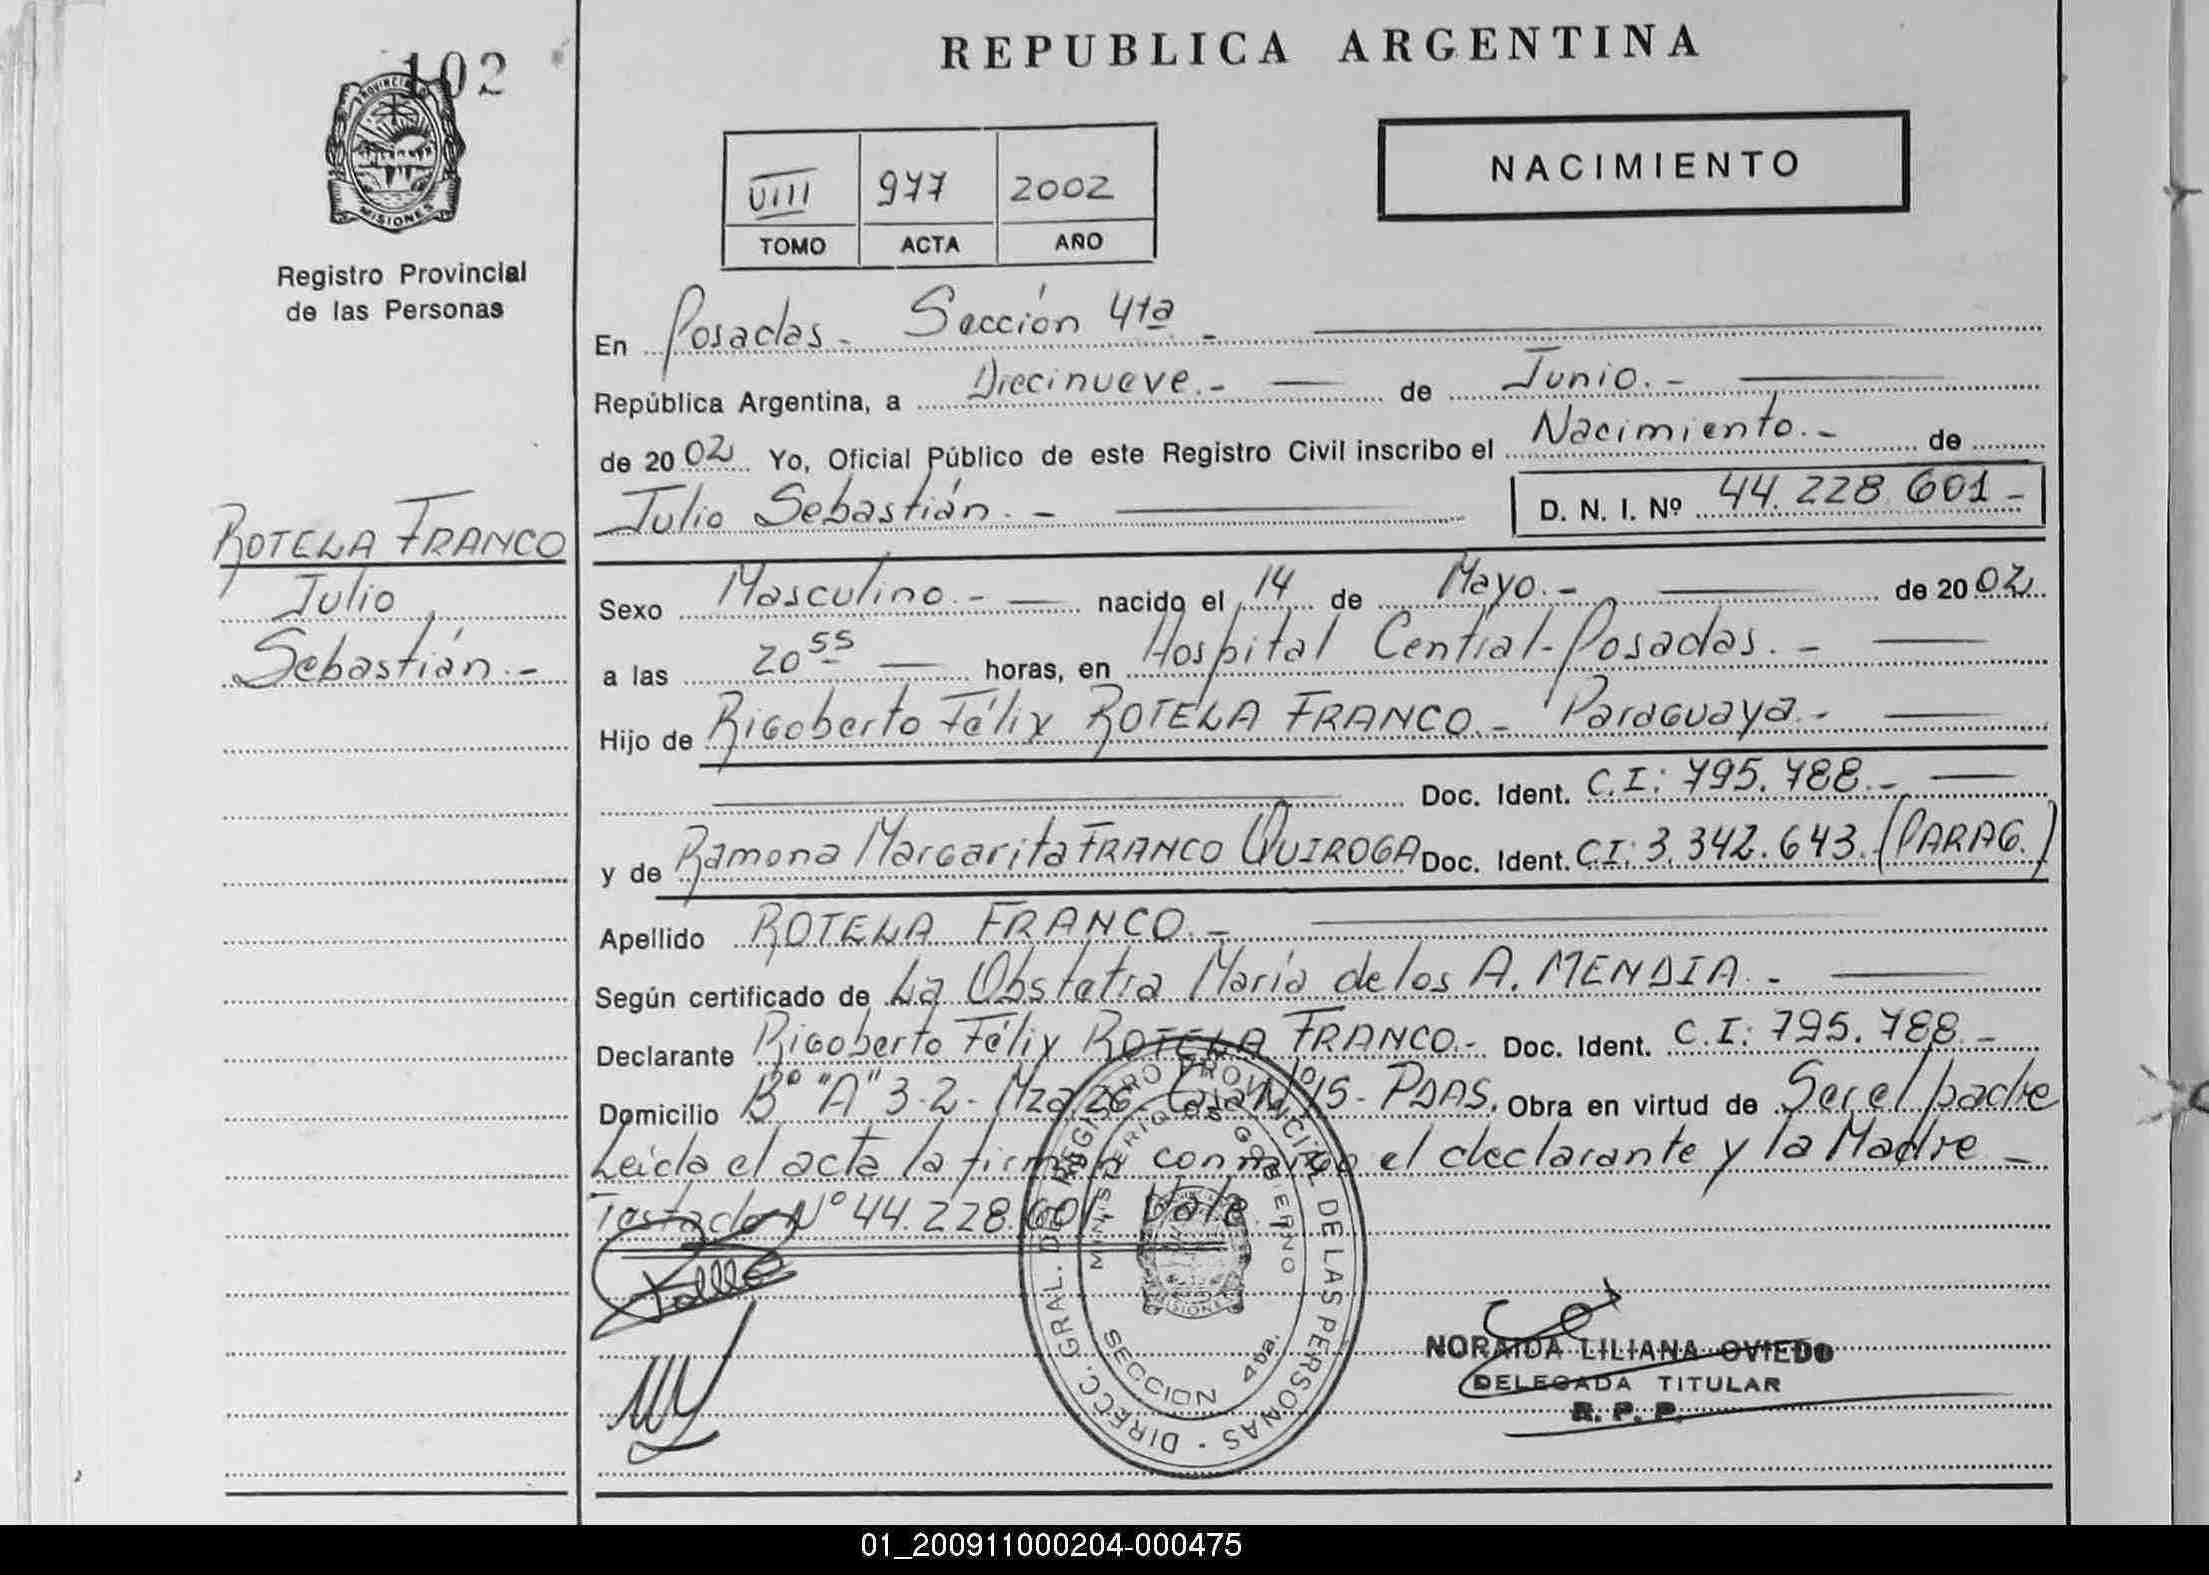 102
PROVINCIA DE
MISIONES
Registro Provincial
de las Personas
REPUBLICA ARGENTINA
NACIMIENTO
VIII 977 2002
TOMO ACTA AÑO
En Posadas - Sección 4ta -
República Argentina, a Diecinueve.- de Junio.-
de 2002 Yo, Oficial Público de este Registro Civil inscribo el Nacimiento.- de
Julio Sebastián.- D. N. I. Nº 44.228.601-
ROTELA FRANCO
Julio
Sebastián.-
Sexo Masculino.- nacido el 14 de Mayo.- de 2002
a las 20 55 horas, en Hospital Central-Posadas.-
Hijo de Rigoberto Félix ROTELA FRANCO.- Paraguaya.-
Doc. Ident. C.I: 795.788.-
y de Ramona Margarita FRANCO QUIROGA Doc. Ident. C.I: 3.342.643.(PARAG.)
Apellido ROTELA FRANCO.-
Según certificado de La Obstetra María de los A. MENDIA.-
Declarante Rigoberto Félix ROTELA FRANCO.- Doc. Ident. C.I: 795.788.-
Domicilio Bº "A" 3-2- Mza 26- Casa Nº15- PDAS. Obra en virtud de Ser el padre
Leída el acta la firman conmigo el declarante y la Madre -
Testado Nº 44.228.601 Vale
DIRECC. GRAL. DE REGISTRO PROVINCIAL DE LAS PERSONAS -
MINISTERIO DE GOBIERNO
MISIONES
SECCION 4ta.
NORAIDA LILIANA OVIEDO
DELEGADA TITULAR
R. P. P.
01_200911000204-000475